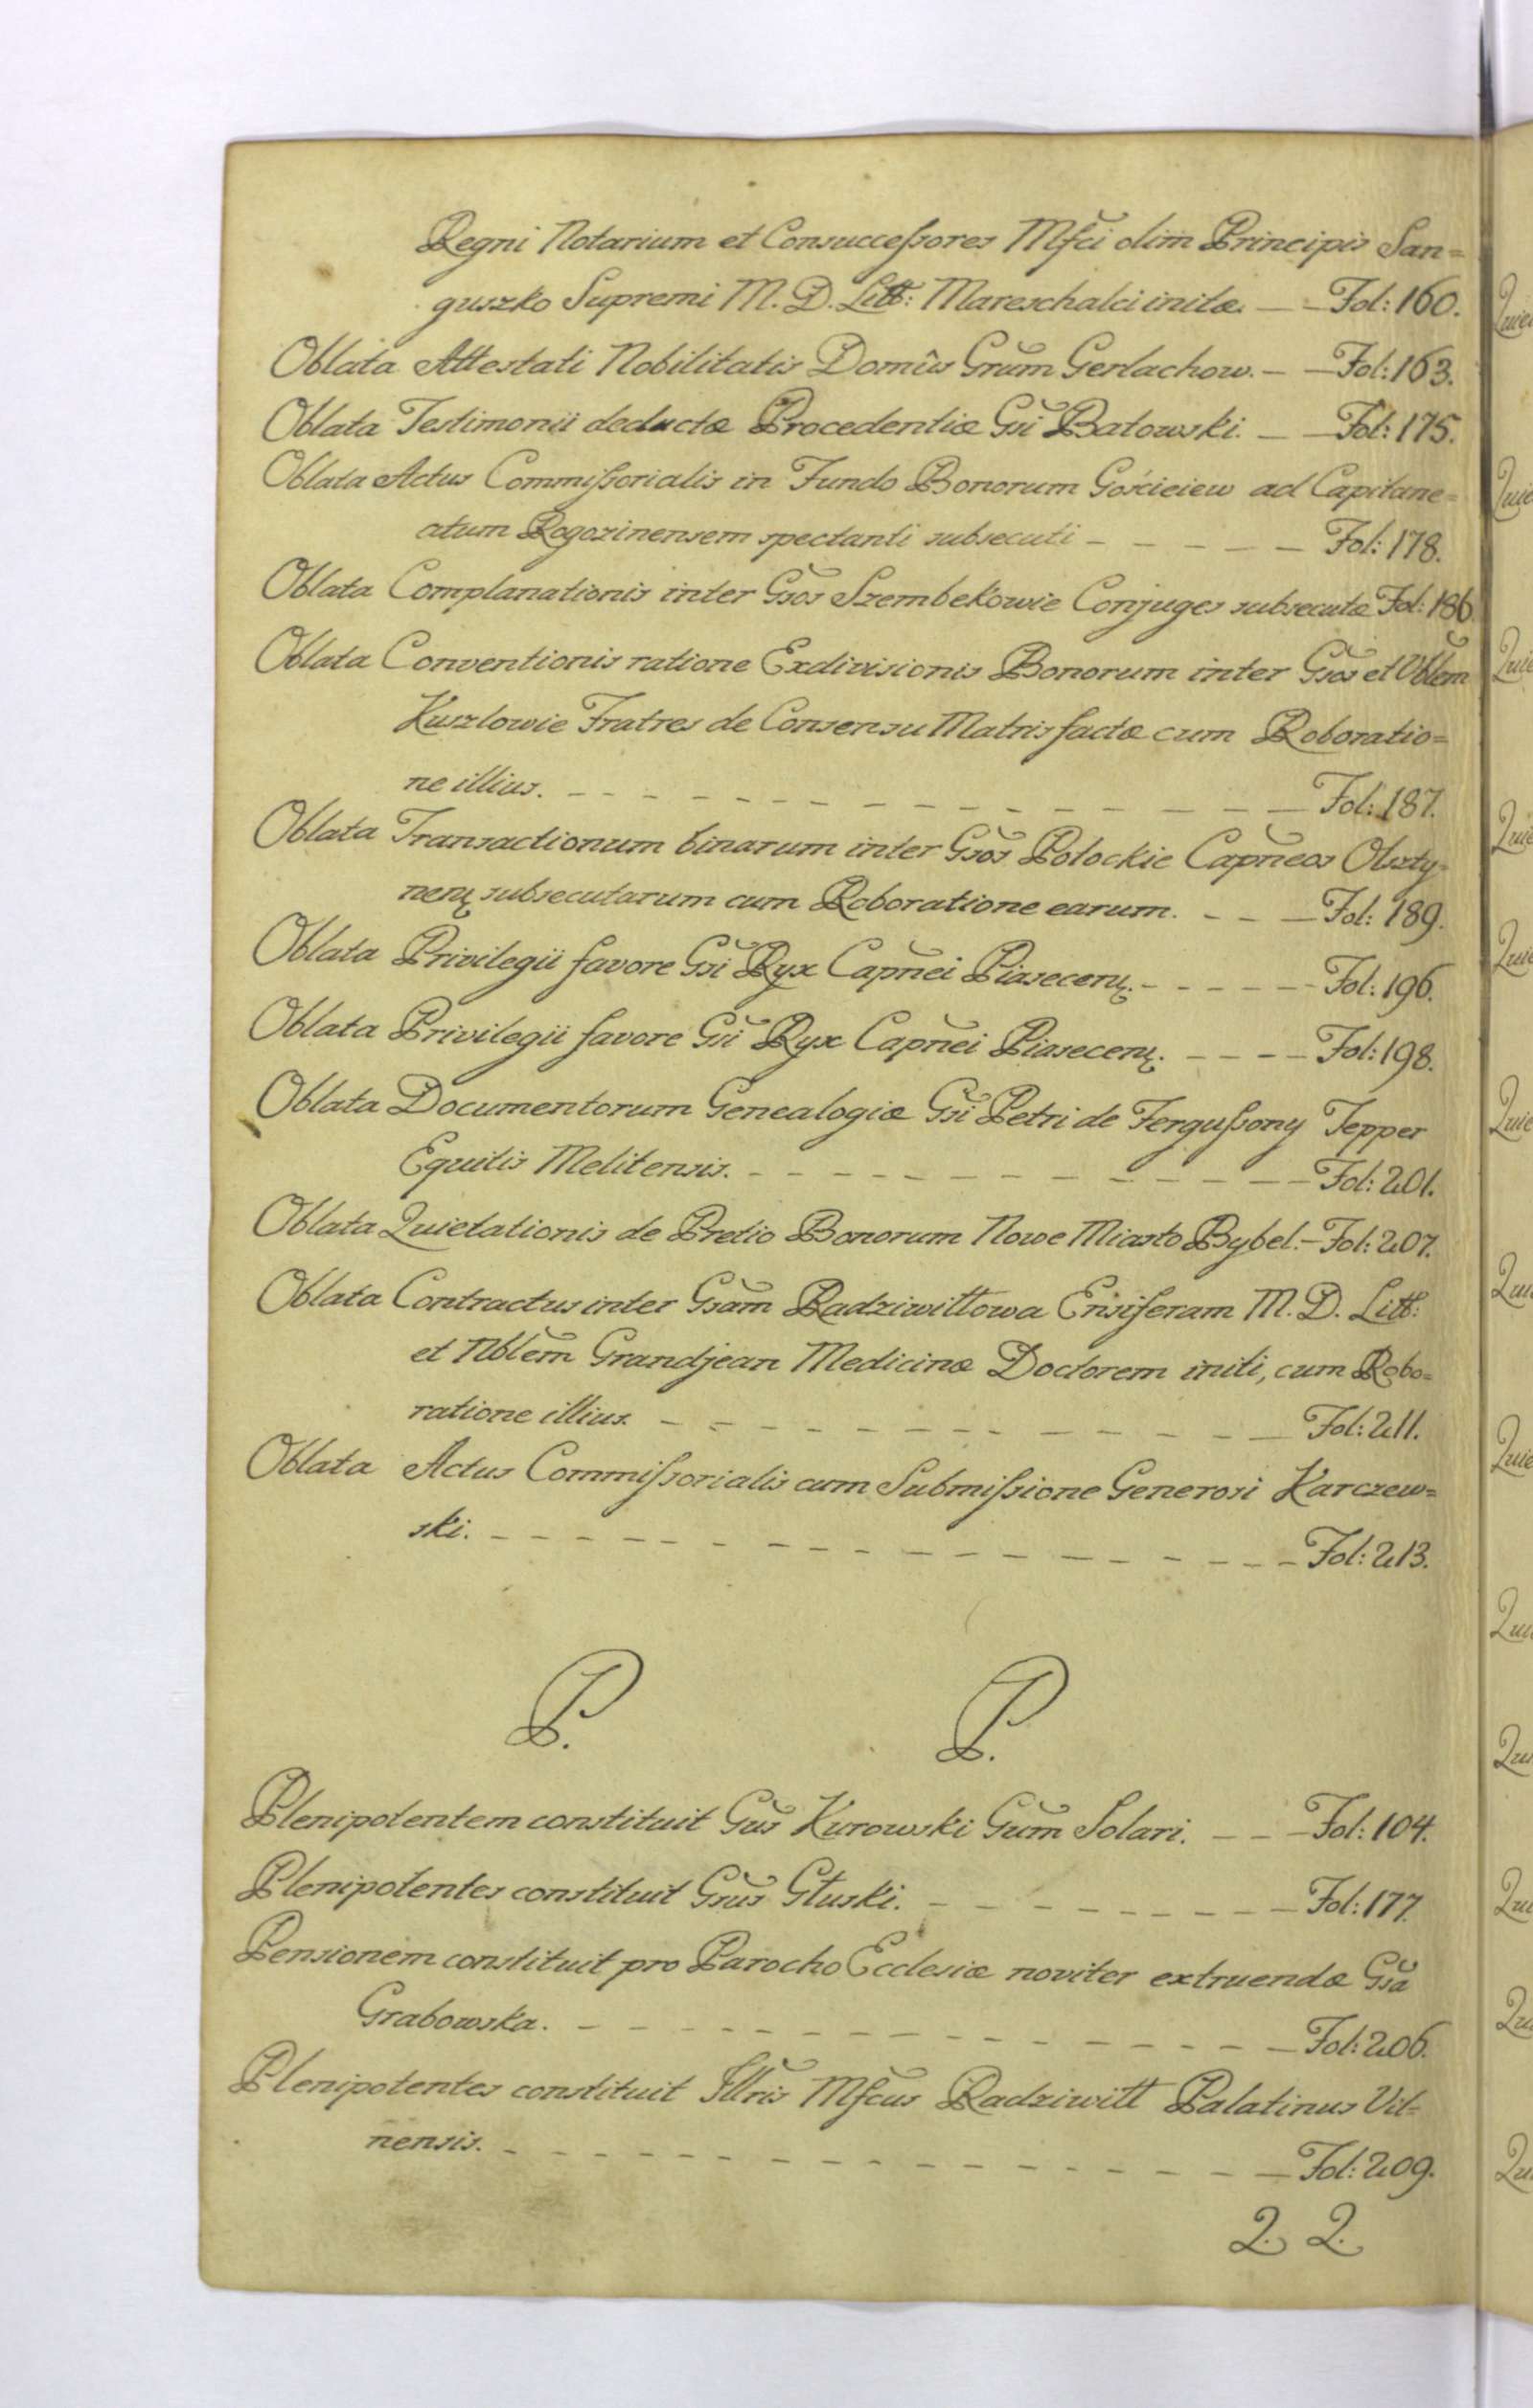 Regni Notarium et Consuccessores Mfci olim Principis San=
guszko Supremi M. D. Litt: Mareschalci initæ. — — Fol: 160.
Oblata Attestati Nobilitatis Domûs Grum Gerlachow. — — Fol: 163.
Oblata Testimonii deductæ Procedentiæ Gsi Batowski. — — Fol: 175.
Oblata Actus Commissorialis in Fundo Bonorum Gościeiew ad Capitane=
atum Rogozinensem spectanti subsecuti — — — — — Fol: 178.
Oblata Complanationis inter Gsos Szembekowie Conjuges subsecutæ Fol: 186.
Oblata Conventionis ratione Exdivisionis Bonorum inter Gsos et Nblem
Kuszlowie Fratres de Consensu Matris factæ cum Roboratio=
ne illius. — — — — — — — — — — Fol: 187.
Oblata Transactionum binarum inter Gsos Potockie Capneos Olszty=
nen, subsecutarum cum Roboratione earum. — — — Fol: 189.
Oblata Privilegii favore Gsi Ryx Capnei Piasecen, — — — — — Fol: 196.
Oblata Privilegii favore Gsi Ryx Capnei Piasecen, — — — — Fol: 198.
Oblata Documentorum Genealogiæ Gsi Petri de Fergussony Tepper
Equitis Melitensis. — — — — — — — — — Fol: 201.
Oblata Quietationis de Pretio Bonorum Nowe Miasto Bybel. — Fol: 207.
Oblata Contractus inter Gsam Radziwiłłowa Ensiferam M. D. Litt:
et Nblem Grandjean Medicinæ Doctorem initi, cum Robo=
ratione illius. — — — — — — — — — Fol: 211.
Oblata Actus Commissorialis cum Submissione Generosi Karczew=
ski. — — — — — — — — — — Fol: 213.
P. P.
Plenipotentem constituit Gus Kurowski Gum Solari. — — — Fol: 104.
Plenipotentes constituit Gsus Głuski. — — — — — — — Fol: 177.
Pensionem constituit pro Parocho Ecclesiæ noviter extruendæ Gsa
Grabowska. — — — — — — — — — — Fol: 206.
Plenipotentes constituit Illris Mfcus Radziwiłł Palatinus Vil=
nensis. — — — — — — — — — — Fol: 209.
Q. Q.